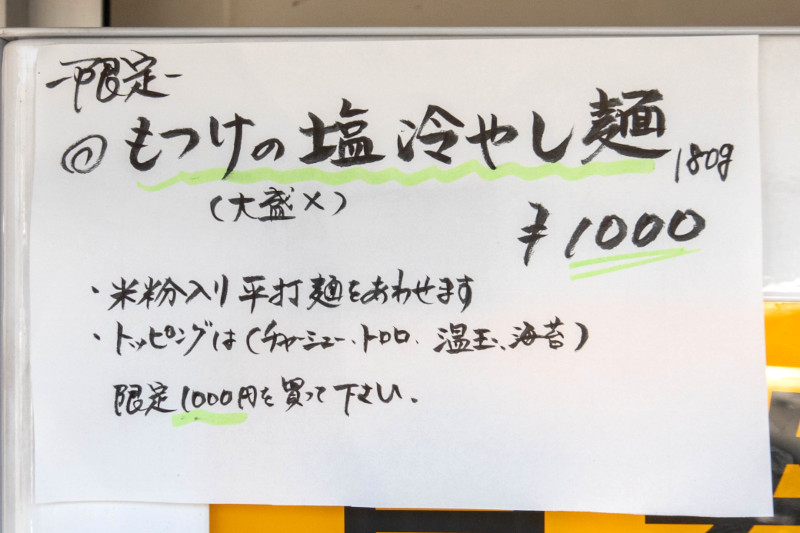 -限定-
◎もつけの塩冷やし麺 180g
(大盛×)
¥1000
・米粉入り平打麺をあわせます
・トッピングは(チャーシュー、トロロ、温玉、海苔)
限定1000円を買って下さい.